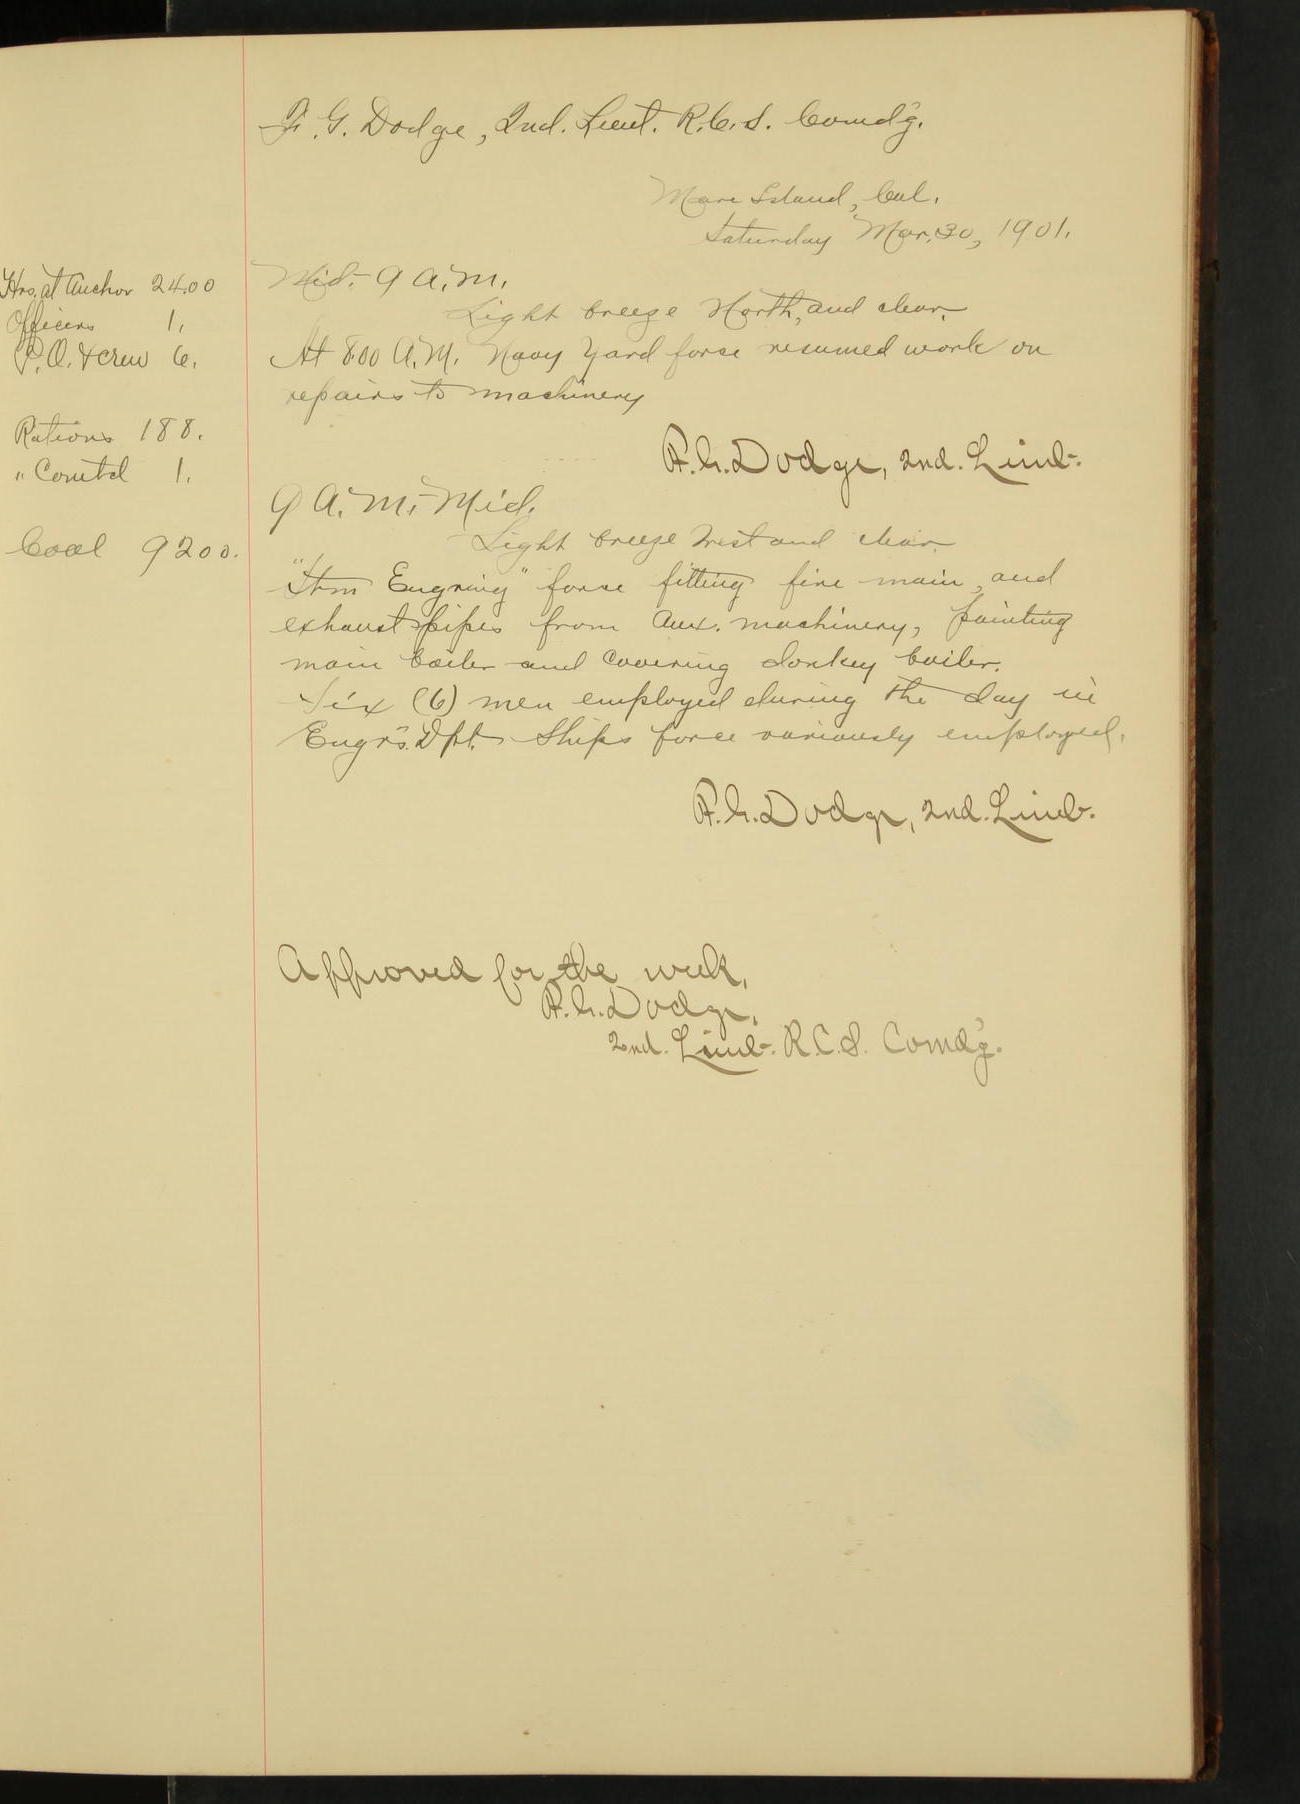 F. G. Dodge, 2nd. Lieut. R.C.S. Comd'g.
Mare Island, Cal.
Saturday Mar. 30, 1901.
Hrs. at Anchor 24.00
Officers 1.
P.O. & crew 6.
Rations 188.
" Com'td 1.
Coal 9200.
Mid.- 9 A.M.
Light breeze North, and clear.
At 8.00 A.M. Navy Yard force resumed work on
repairs to machinery
F.G. Dodge, 2nd. Lieut.
9 A.M.- Mid.
Light breeze West and clear.
"Stm Engring" force fitting fire main, and
exhaust pipes from Aux. machinery, painting
main boiler and covering donkey boiler.
Six (6) men employed during the day in
Engr's. Dpt. Ships force variously employed.
F.G. Dodge, 2nd. Lieut.
Approved for the week,
F.G. Dodge,
2nd. Lieut. R.C.S. Comd'g.